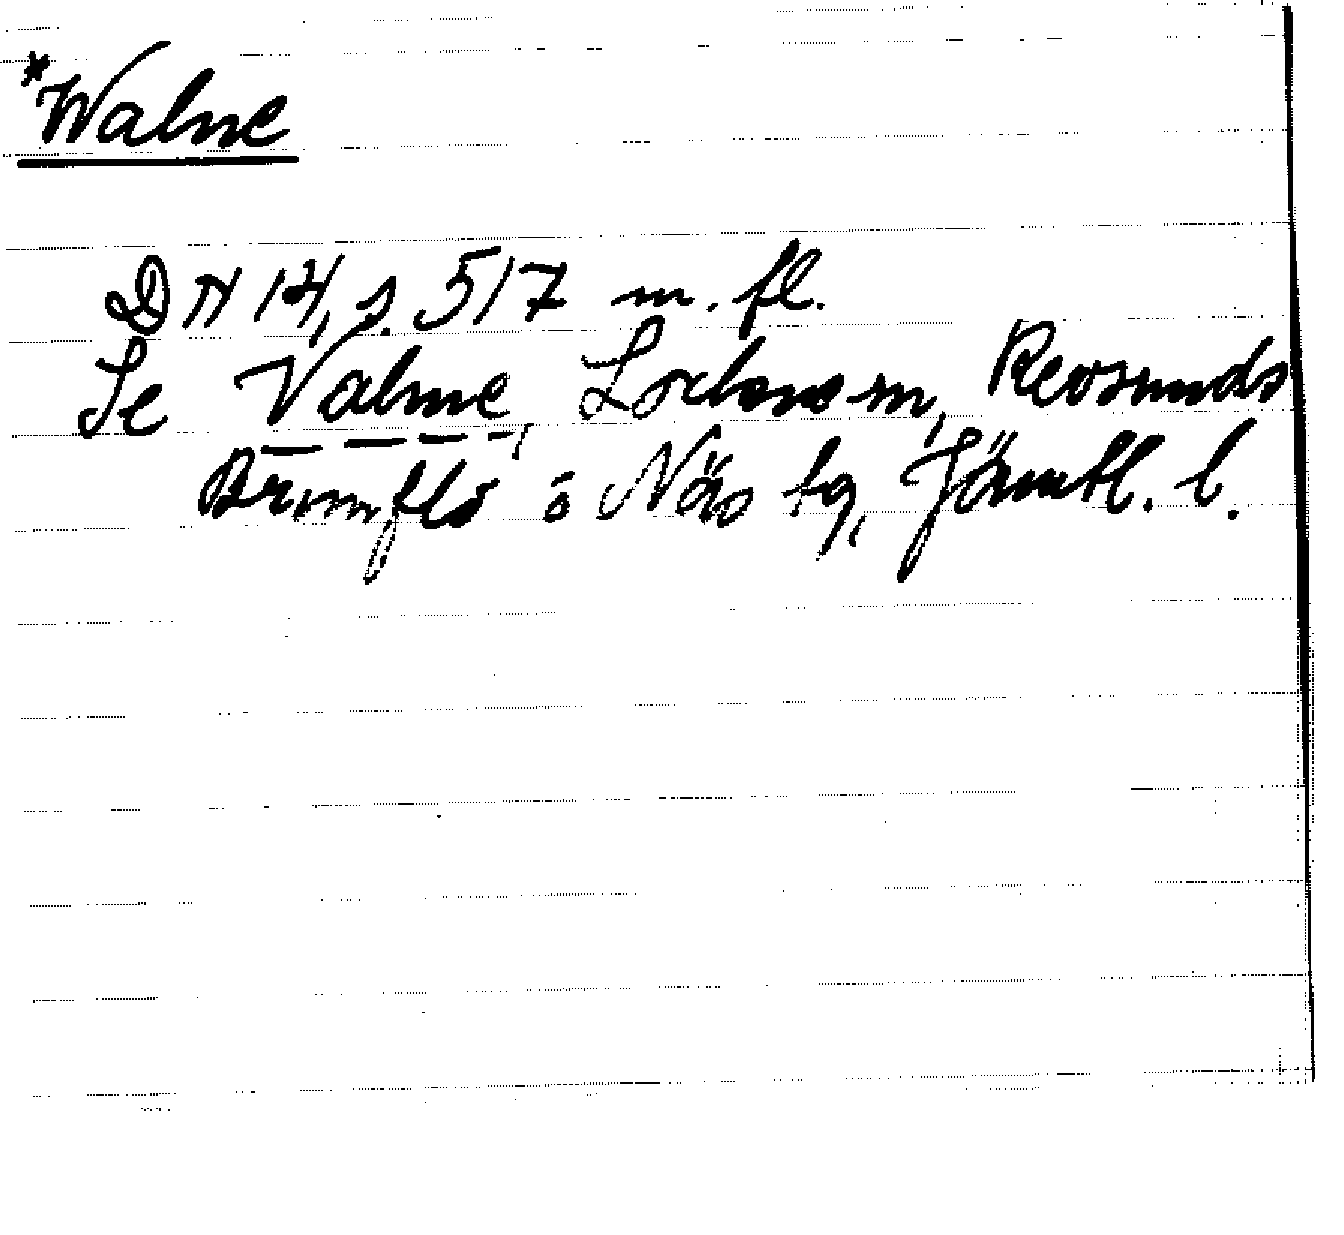 *Walne
DN 14, s. 517 m. fl.
Se Valne, Lockne sn, Revsunds
Brunflo o Näs tg, Jämtl. l.